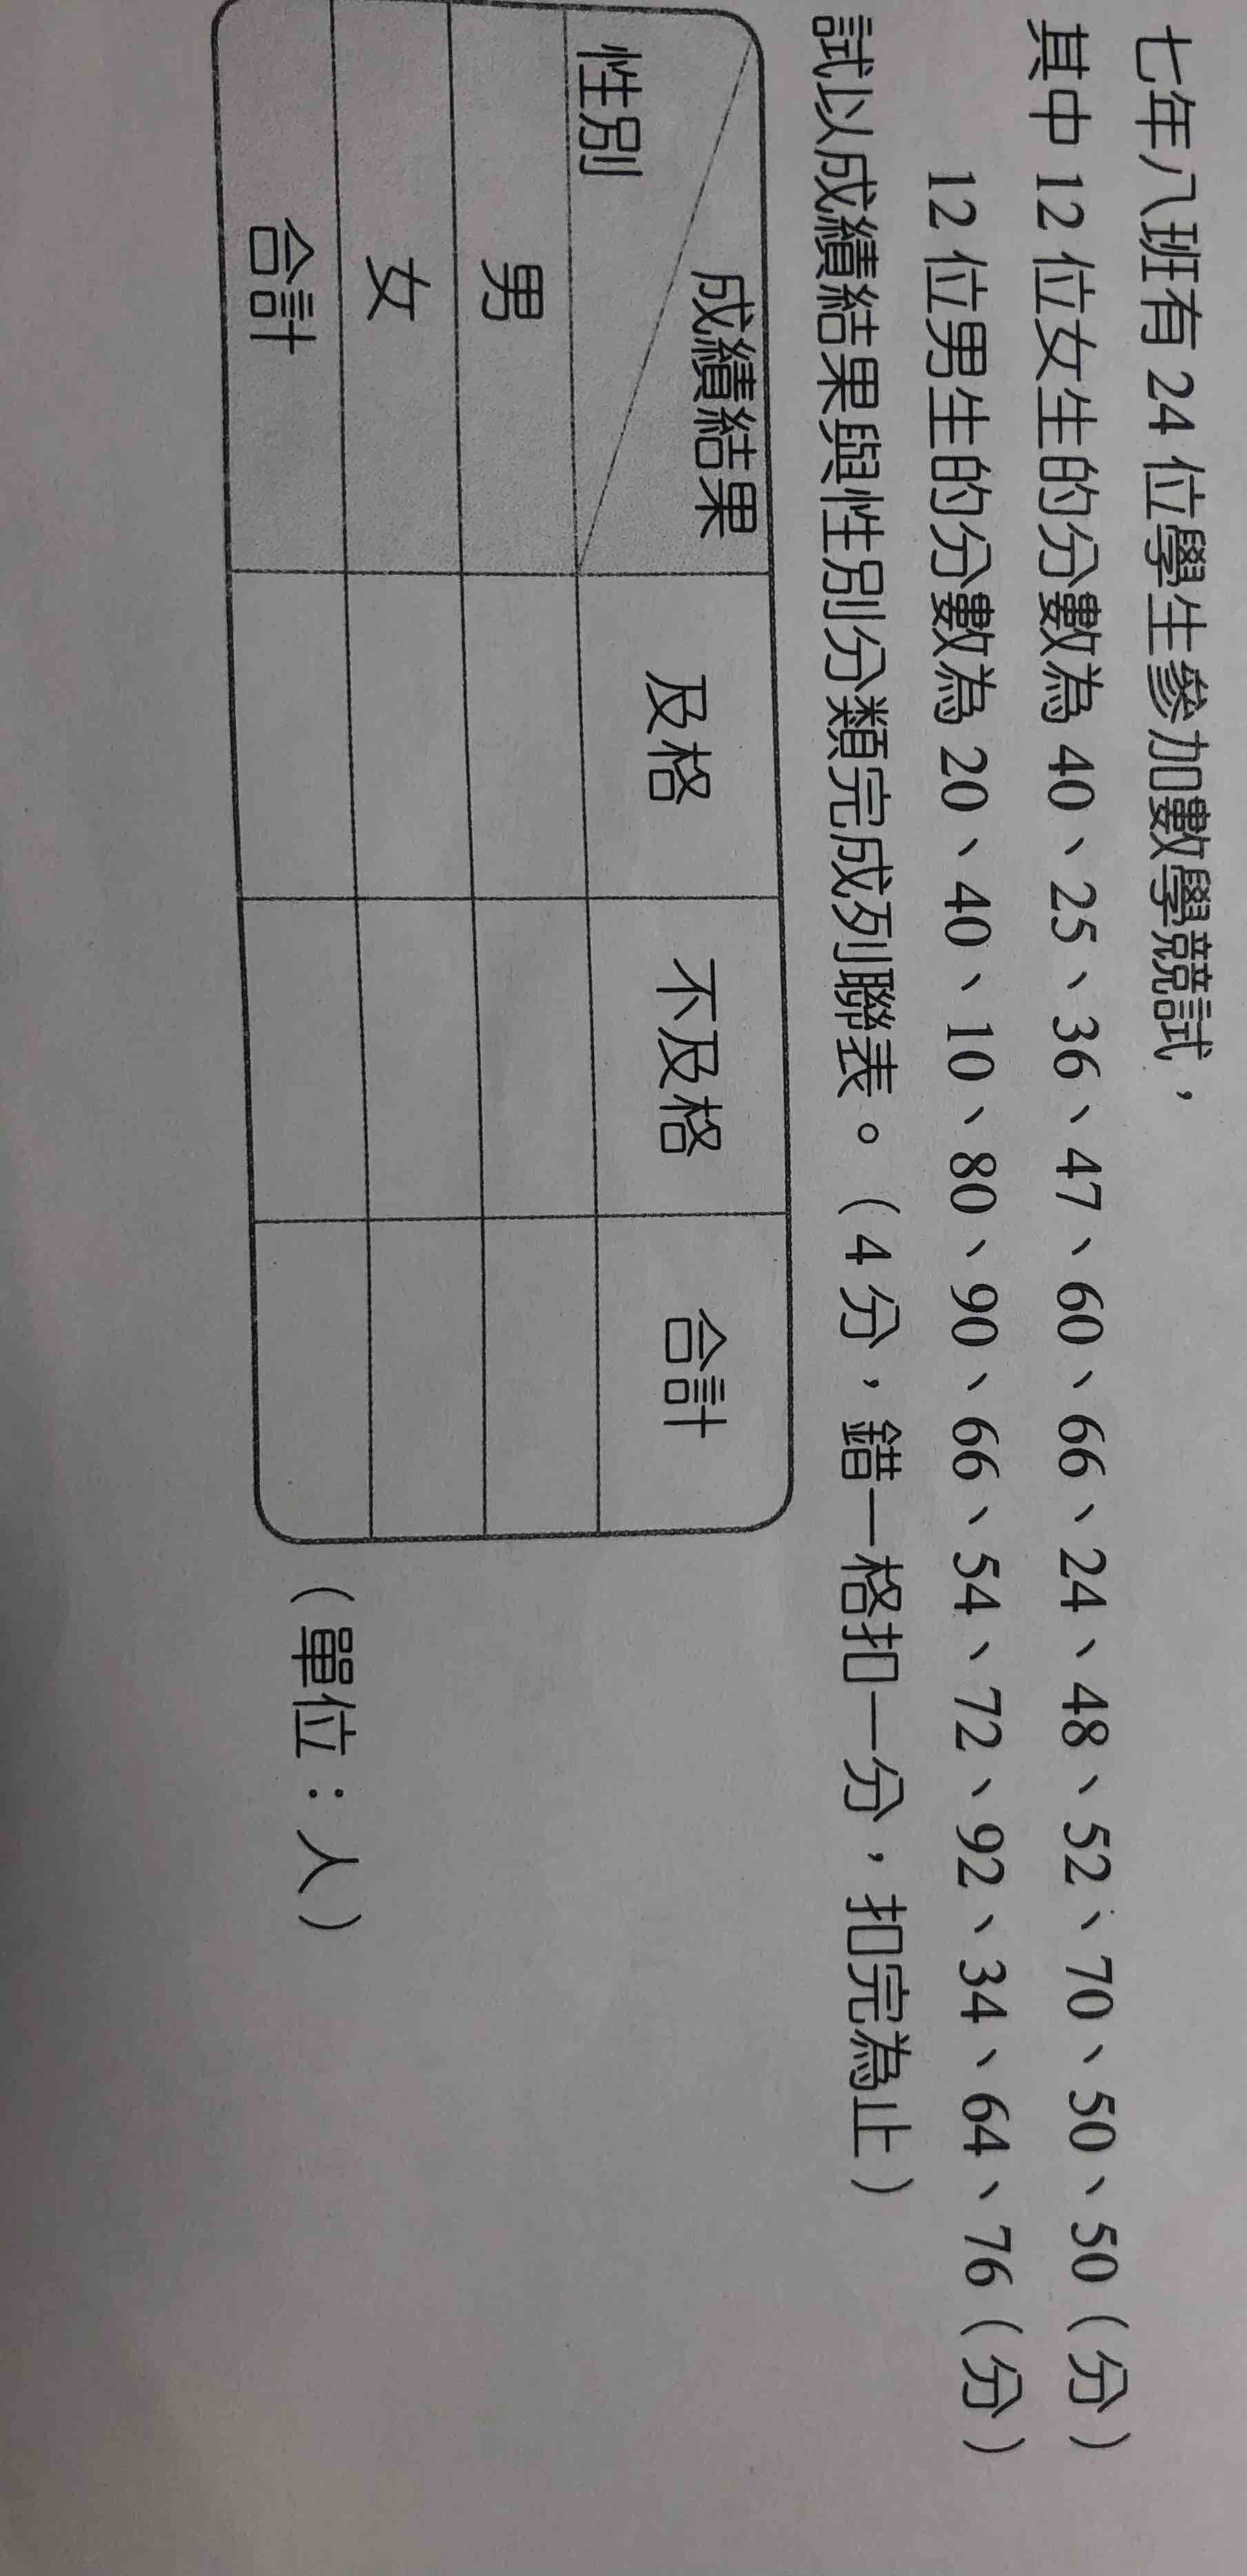 七年八班有 24 位學生參加數學競試，
其中 12 位女生的分數為 40、25、36、47、60、66、24、48、52、70、50、50（分）
12 位男生的分數為 20、40、10、80、90、66、54、72、92、34、64、76（分）
試以成績結果與性別分類完成列聯表。（4 分，錯一格扣一分，扣完為止）
成績結果 及格 不及格 合計
性別
男
女
合計
（單位：人）